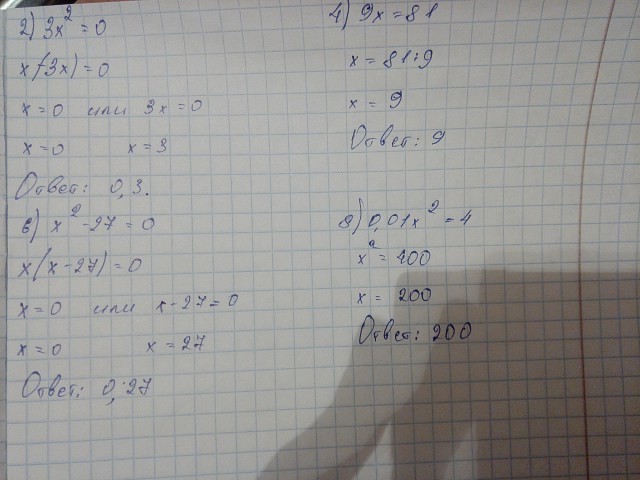 2) 3x² = 0
x(3x) = 0
x = 0 или 3x = 0
x = 0 x = 3
Ответ: 0, 3.
6) x² - 27 = 0
x(x - 27) = 0
x = 0 или x - 27 = 0
x = 0 x = 27
Ответ: 0; 27
4) 9x = 81
x = 81 : 9
x = 9
Ответ: 9
8) 0,01x² = 4
x² = 400
x = 200
Ответ: 200